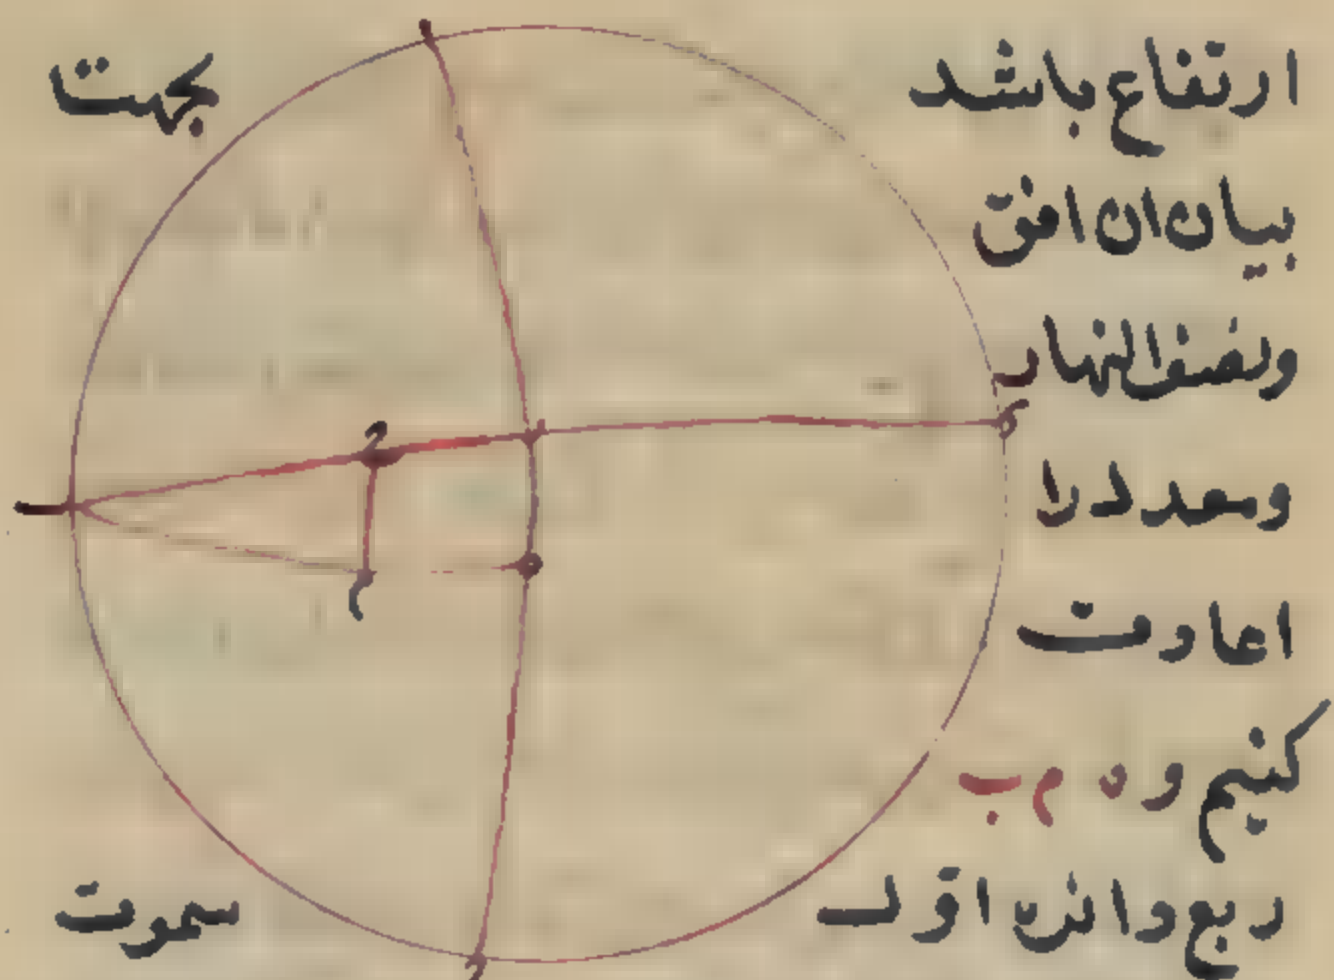 ارتفاع باشد بجهت
بیان ان افق
ونصف النهار
ومعدل را
اعادت
کنیم و ه م ب
ربع دائره اول سموت